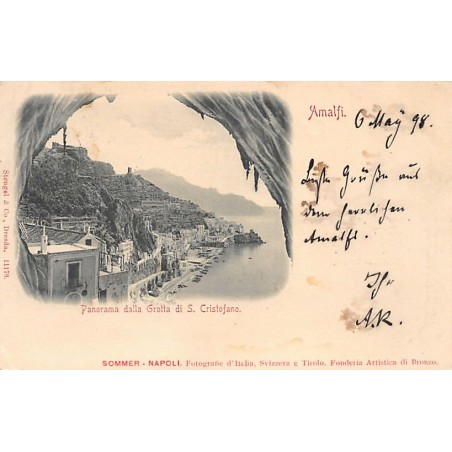 Amalfi.
6 Maÿ 98.
Beste Grüße aus
dem herrlichen
Amalfi.
Ihr
A.R.
Stengel & Co., Dresda. 11179.
Panorama dalla Grotta di S. Cristofano.
SOMMER - NAPOLI. Fotografie d'Italia, Svizzera e Tirolo. Fonderia Artistica di Bronzo.